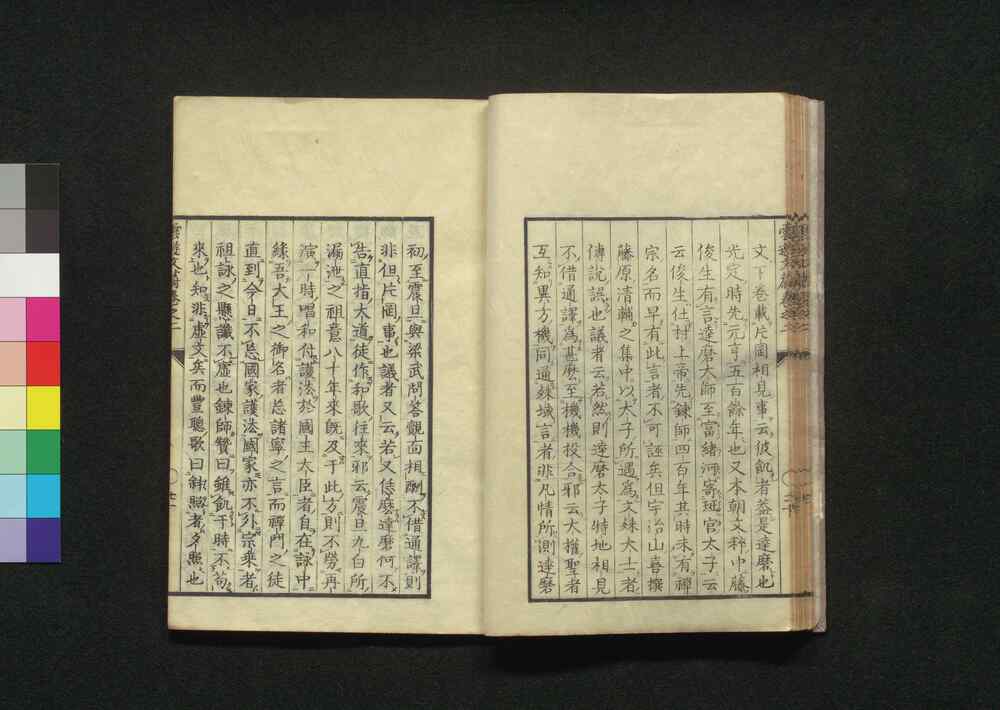 文下卷載片岡相見事云彼飢者蓋是達磨也
光定時先元亨五百餘年也又本朝文粹中藤
俊生有言達磨大師至富緒河寄斑宮太子云
云俊生仕村上帝先鍊師四百年其時未有禪
宗名而早有此言者不可誣矣但宇治山喜撰
藤原清輔之集中以太子所遇為文殊大士者
傳說訛也議者云若然則達磨太子特地相見
不借通譯為甚麼至機機投合邪云大權聖者
互知異方機同通殊域言者非凡情所測達磨
初至震旦與梁武問答覿面相酬不借通譯則
非但片岡事也議者又云若又恁麼達磨何不
告直指大道徒作和歌往來邪云震旦九白所
漏泄之祖意八十年來既及于此方則不勞再
演一時唱和付護法於國王大臣者自在詠中
緣吾大王之御名者忘諸寧之言而禪門之徒
直到今日不忘國家護法國家亦不外宗乘者
祖詠之懸讖不虛也鍊師贊曰雖飢于時不
來也知非虛文矣而豐聰歌曰
雲遊文蔚卷之二